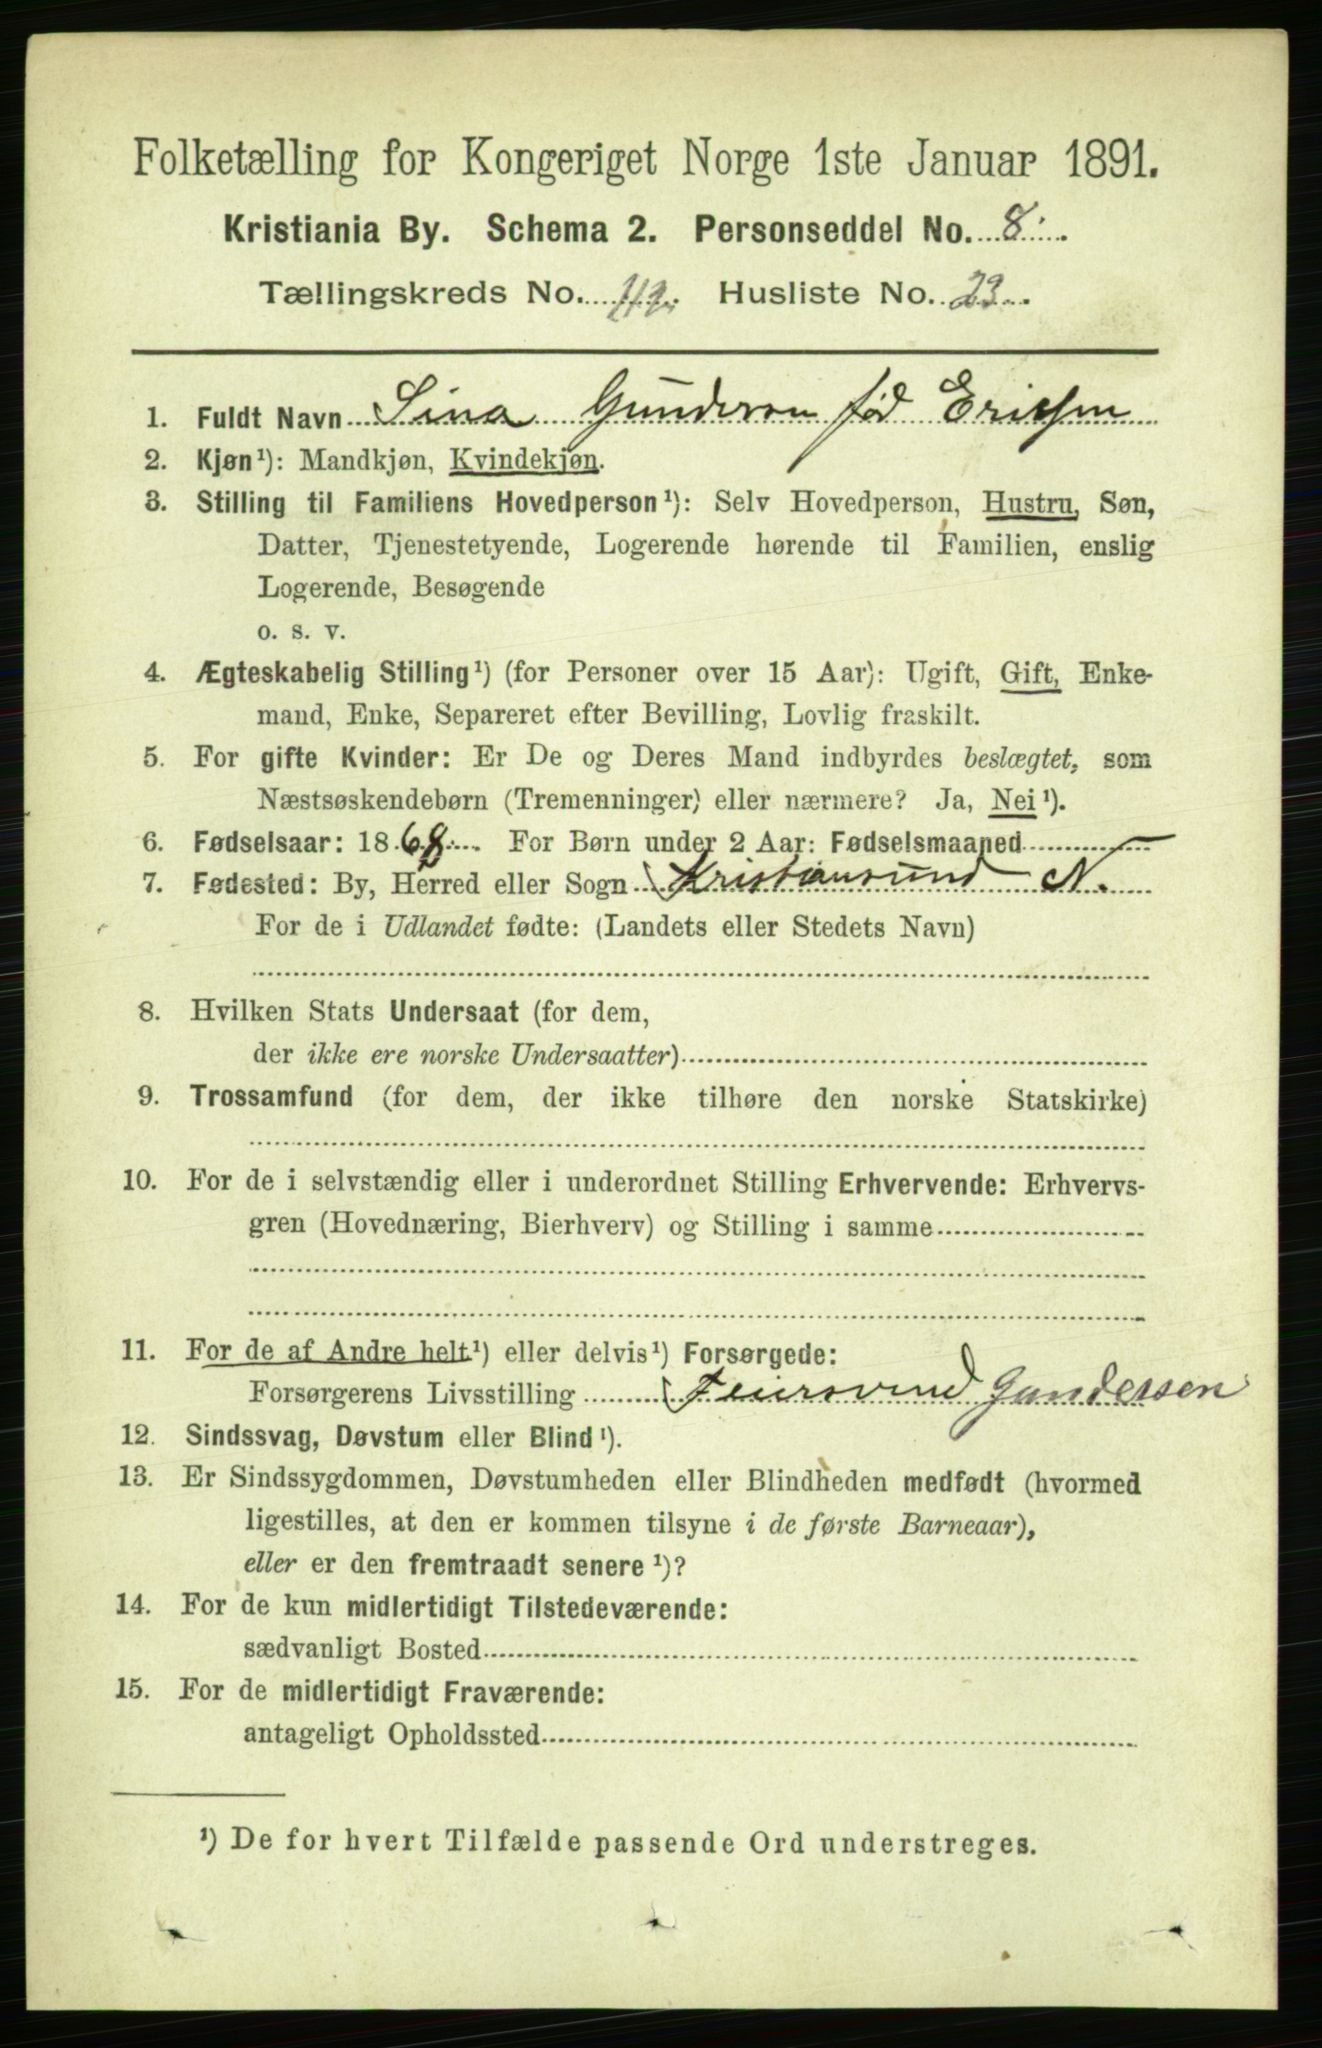 Folketælling for Kongeriget Norge 1ste Januar 1891.
Kristiania By. Schema 2. Personseddel No. 8.
Tællingskreds No. Husliste No. 23.
1. Fuldt Navn Sina Gunderson fød Ericsen
2. Kjøn¹): Mandkjøn, Kvindekjøn.
3. Stilling til Familiens Hovedperson¹): Selv Hovedperson, Hustru, Søn,
Datter, Tjenestetyende, Logerende hørende til Familien, enslig
Logerende, Besøgende
o. s. v.
4. Ægteskabelig Stilling¹) (for Personer over 15 Aar): Ugift, Gift, Enke-
mand, Enke, Separeret efter Bevilling, Lovlig fraskilt.
5. For gifte Kvinder: Er De og Deres Mand indbyrdes beslægtet, som
Næstsøskendebørn (Tremenninger) eller nærmere? Ja, Nei¹).
6. Fødselsaar: 1868. For Børn under 2 Aar: Fødselsmaaned
7. Fødested: By, Herred eller Sogn Kristiansund N.
For de i Udlandet fødte: (Landets eller Stedets Navn)
8. Hvilken Stats Undersaat (for dem,
der ikke ere norske Undersaatter)
9. Trossamfund (for dem, der ikke tilhøre den norske Statskirke)
10. For de i selvstændig eller i underordnet Stilling Erhvervende: Erhvervs-
gren (Hovednæring, Bierhverv) og Stilling i samme
11. For de af Andre helt¹) eller delvis¹) Forsørgede:
Forsørgerens Livsstilling Gundersen
12. Sindssvag, Døvstum eller Blind¹).
13. Er Sindssygdommen, Døvstumheden eller Blindheden medfødt (hvormed
ligestilles, at den er kommen tilsyne i de første Barneaar),
eller er den fremtraadt senere¹)?
14. For de kun midlertidigt Tilstedeværende:
sædvanligt Bosted
15. For de midlertidigt Fraværende:
antageligt Opholdssted
¹) De for hvert Tilfælde passende Ord understreges.